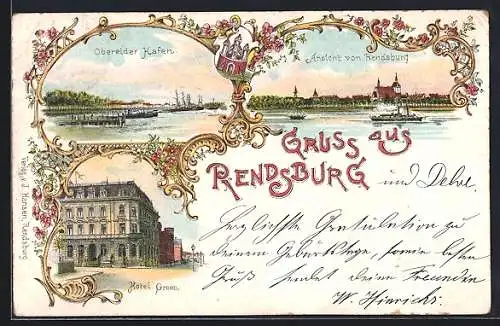 Obereider Hafen.
Ansicht von Rendsburg
GRUSS aus
RENDSBURG
und Debel.
Herzlichste Gratulation zu
deinem Geburtstage, sowie besten
Gruß sendet deine Freundin
W. Hinrichs.
Hotel Green.
Verlag v. J. Hansen, Rendsburg